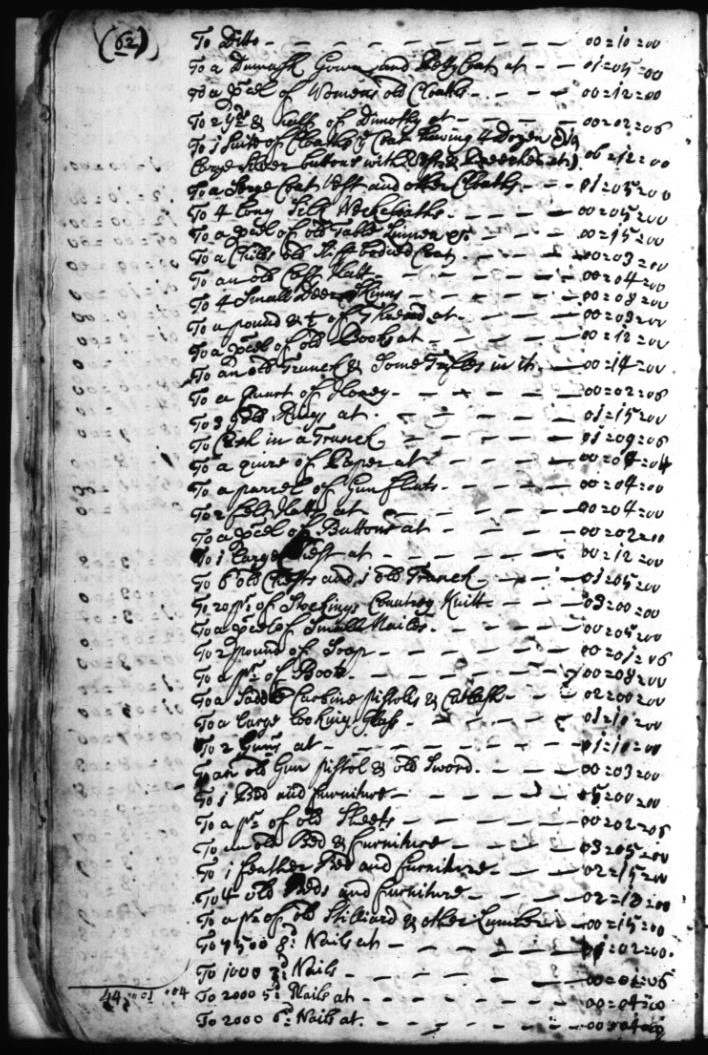 (62)
To Ditto 00=10=00
To a Damask Gown and Petty Coat at 01=05=00
To a pcel of Womens old Cloaths 00=12=00
To 2 yds & half of Dimothy at 00=02=06
To 1 Suite of Cloaths ye Coat having 4 Dozen of
large Silver buttons with Vest & Breeches at 06=12=00
To a Serge Coat Vest and other Cloaths 01=05=00
To 4 long Silk Neckcloaths 00=05=00
To a pcel of old Table Linnen &c 00=15=00
To a Childs old Stiff bodied Coat 00=03=00
To an old Hatt 00=04=00
To 4 Small Deer Skinns 00=08=00
To a pound & ½ of Thread at 00=09=00
To a pcel of old Books at 00=12=00
To an old Trunck & Some in it 00=14=00
To a Quart of Honey 00=02=06
To 3 gold Rings at 01=15=00
To in a Trunck 01=09=06
To a quire of Paper at 00=04
To a parcel of Gun flints 00=04=00
To 2 felt Hatts at 00=04=00
To a pcel of Buttons at 00=02=00
To 1 large Chest at 00=12=00
To 6 old Chests and 1 old Trunck 01=05=00
To 20 pr. of Stockings Country Knitt 03=00=00
To a pcel of Small Nailes 00=05=00
To 2 pound of Soap 00=01=06
To a pr. of Boots 00=08=00
To a Saddle Carbine pistolls & Cutlash 02=00=00
To a large looking glass 01=10=00
To 2 Guns at 01=10=00
To an old Gun pistol & old Sword 00=03=00
To 1 Bed and furniture 5=00=00
To a pr. of old Sheets 00=02=06
To an old Bed & furniture 03=05=00
To 1 feather Bed and furniture 02=15=00
To 4 old Beds and furniture 02=12=00
To a pr. of old Stilliard & other Lumber 00=15=00
To 7500 8d Nails at 02=00
To 1000 3d Nails 00=01=06
44=01=04 To 2000 5d Nails at 00=04=00
To 2000 6d Nails at 00=04